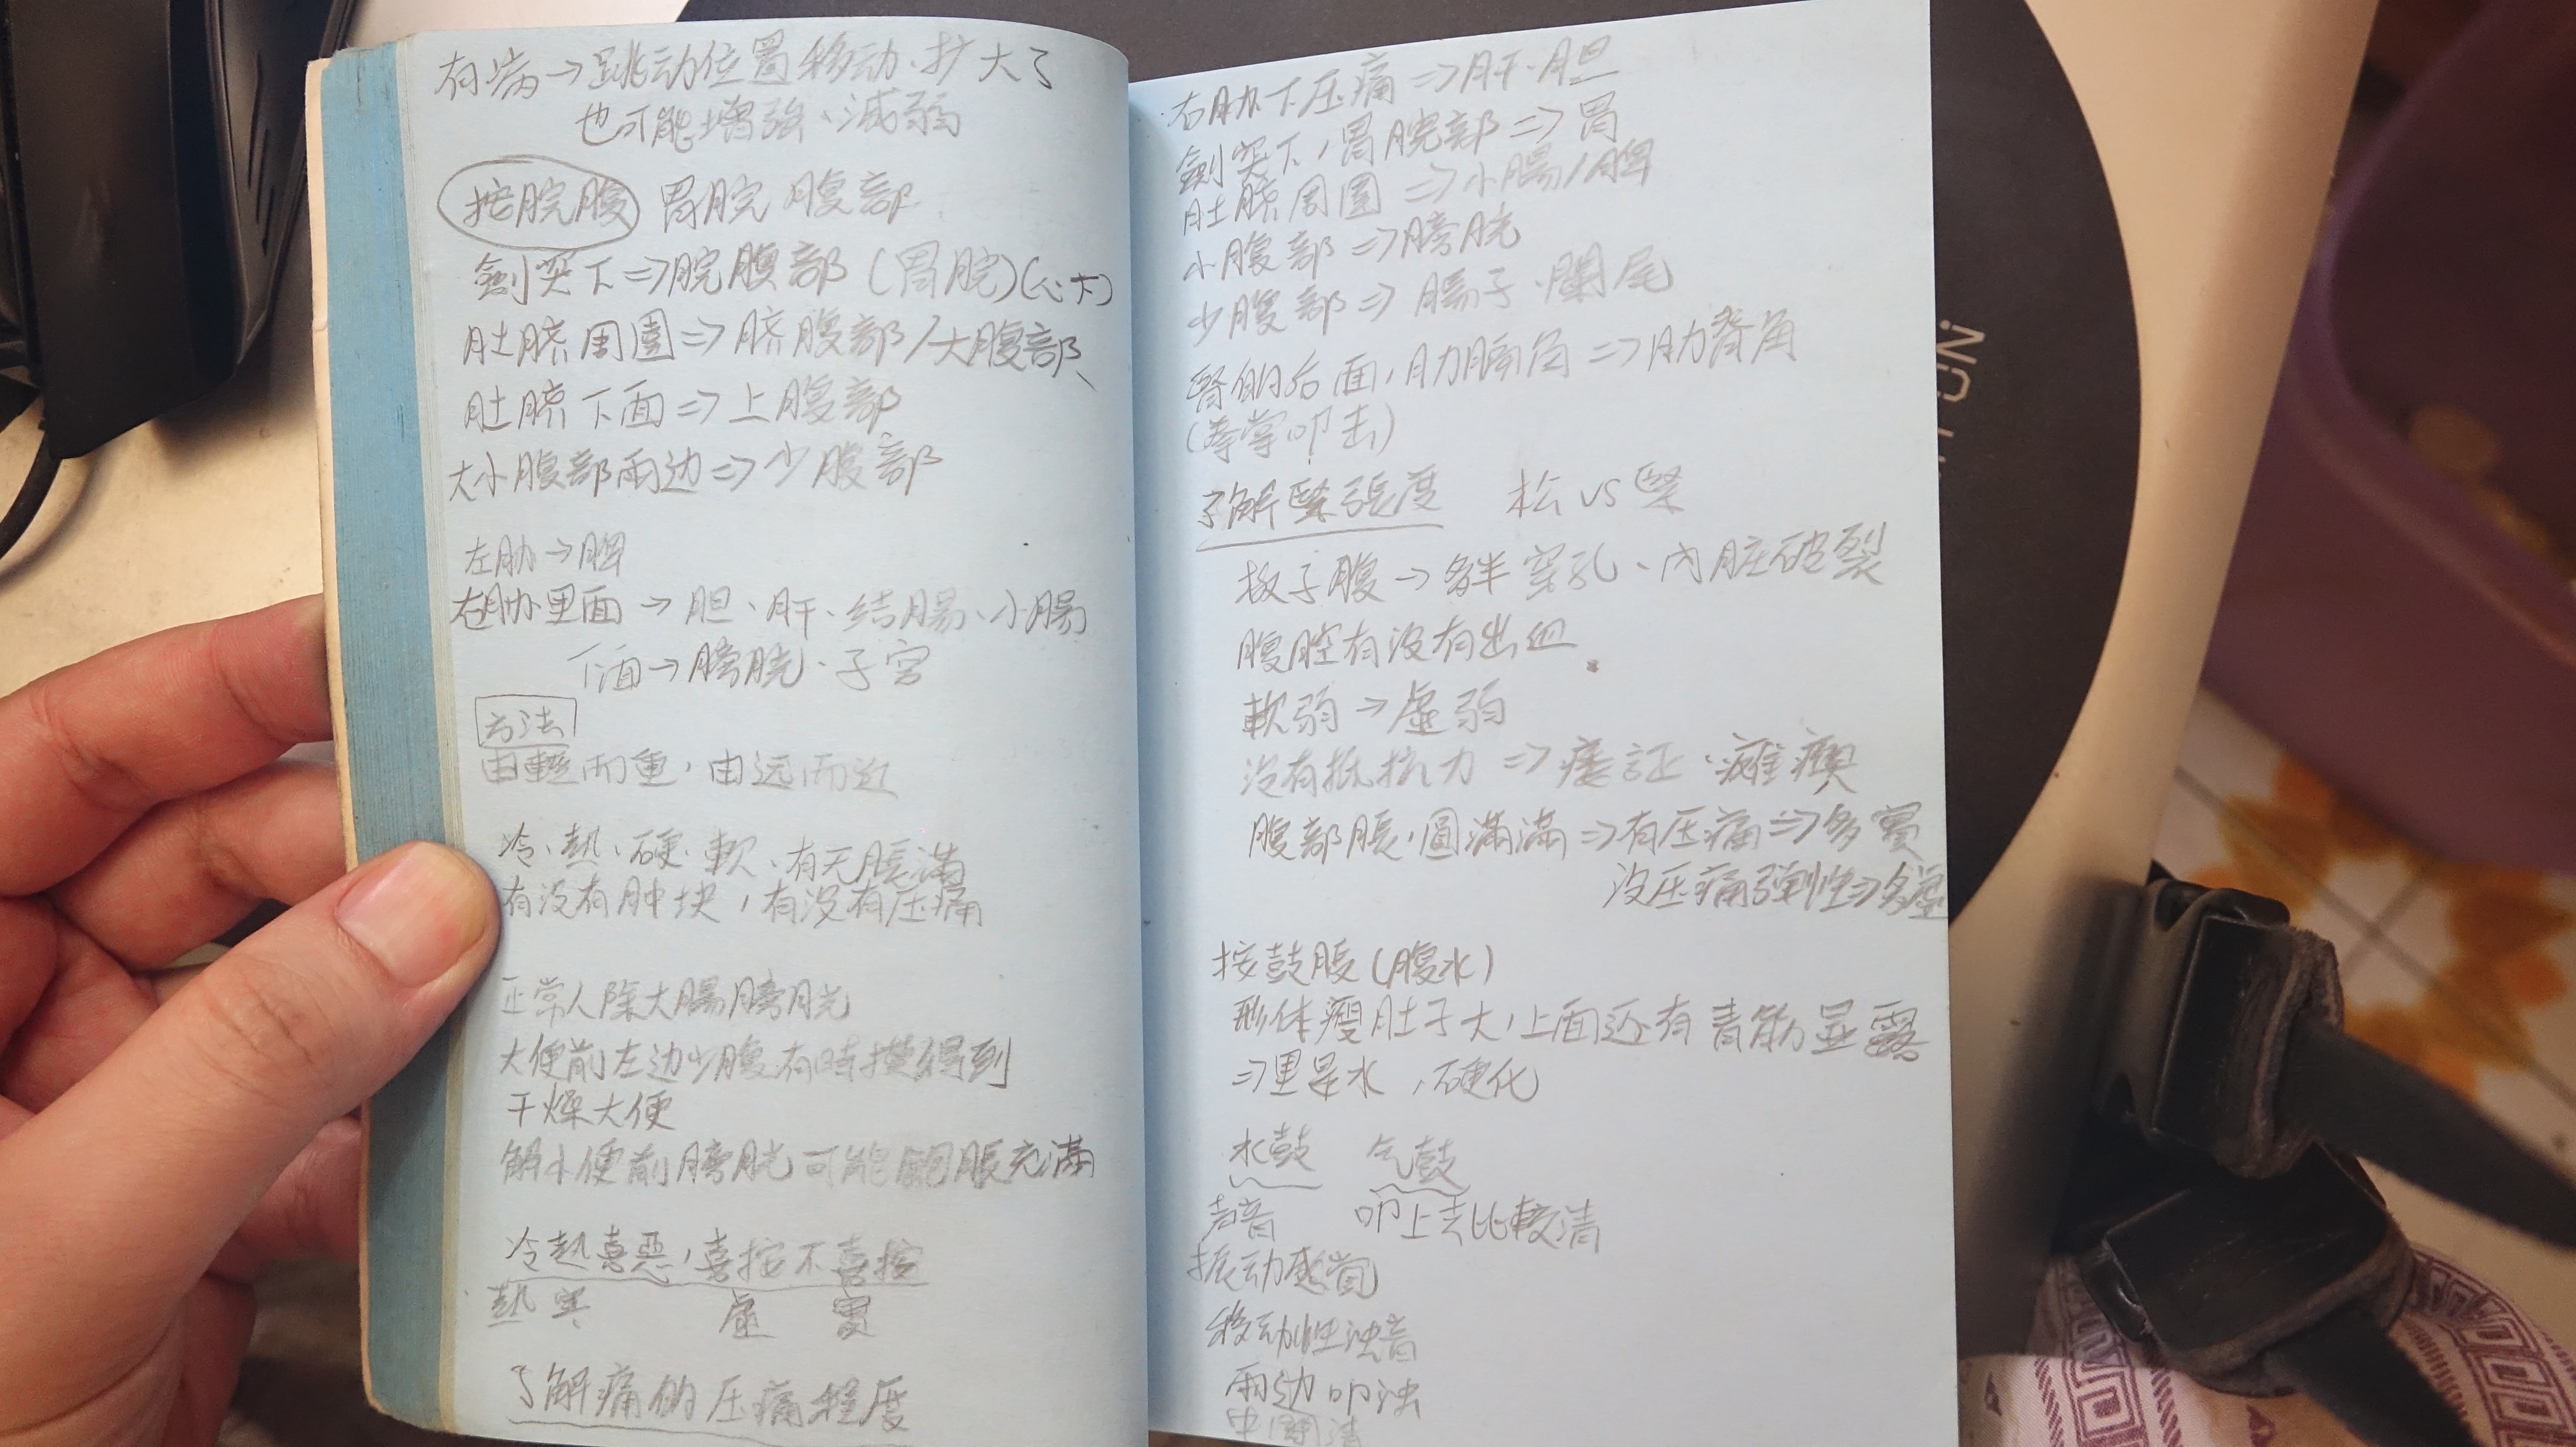 有病→跳动位置移动、扩大了
也可能增強、減弱
按脘腹 胃脘 腹部
劍突下⇒脘腹部(胃脘)(心下)
肚臍周圍⇒臍腹部/大腹部、
肚臍下面⇒上腹部
大小腹部兩边⇒少腹部
左胁→脾
右胁里面→胆、肝、结腸、小腸
下面→膀胱、子宮
方法
由輕而重,由远而近
冷、熱、硬、軟、有无脹滿
有没有肿块,有没有压痛
正常人除大腸膀胱
大便前左边少腹有時摸得到
干燥大便
解小便前膀胱可能飽脹充滿
冷熱喜惡,喜按不喜按
熱寒 虛 實
了解痛的压痛程度
右胁下压痛⇒肝、胆
劍突下,胃脘部⇒胃
肚臍周圍⇒小腸/脾
小腹部⇒膀胱
少腹部⇒腸子、闌尾
腎的后面,肋⇒肋脊角
(拳掌叩击)
了解緊張度 松vs緊
板子腹→穿孔、內脏破裂
腹腔有没有出血
軟弱→虛弱
没有抵抗力⇒痿証、癱瘓
腹部脹,圓滿滿⇒有压痛⇒多實
没压痛弹性⇒多虛
按鼓腹(腹水)
形体瘦肚子大,上面还有青筋显露
⇒里是水,硬化
水鼓 气鼓
声音 叩上去比較清
振动感覚
移动性浊音
兩边叩浊
中間清